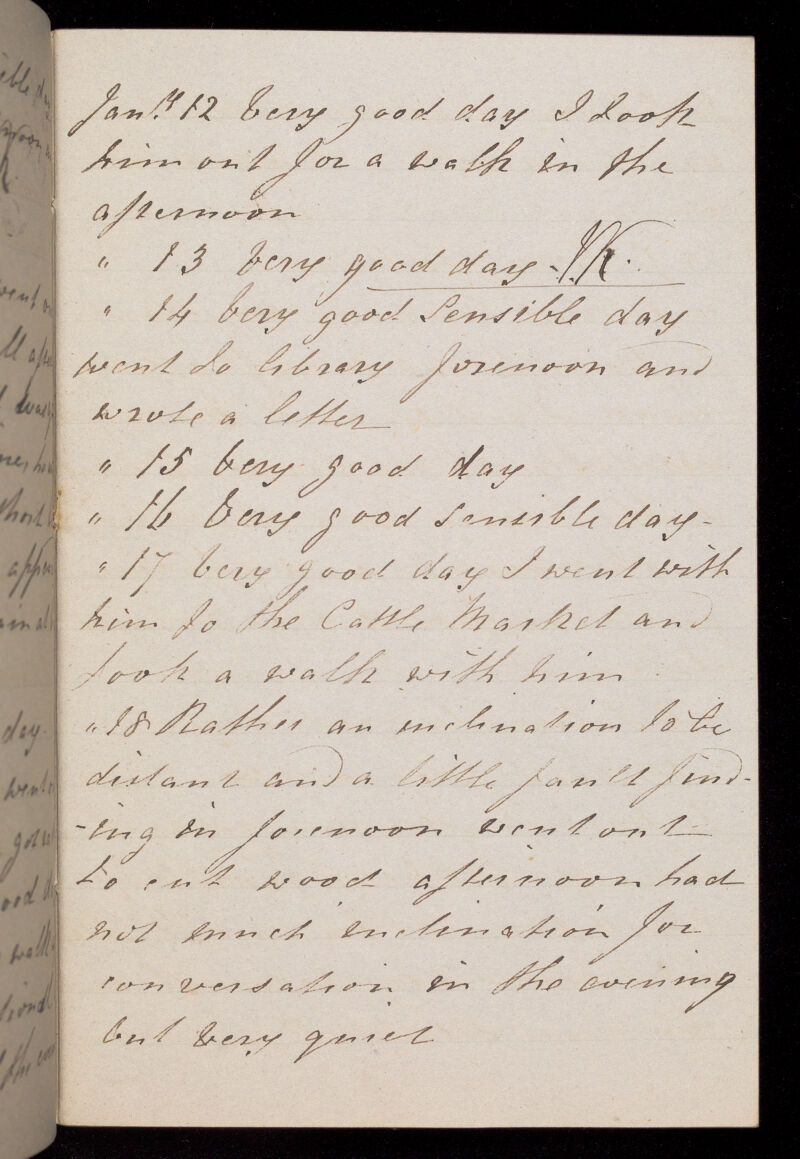 Jany. 12 Very good day I took
him out for a walk in the
afternoon
" 13 Very good day -
" 14 very good sensible day
went to library forenoon and
wrote a letter
" 15 very good day
" 16 Very good sensible day -
" 17 very good day I went with
him to the Cattle Market and
took a walk with him
" 18 Rather an inclination to be
distant and a little fault find-
-ing in forenoon went out
to cut wood afternoon had
not much inclination for
conversation in the evening
but very quiet